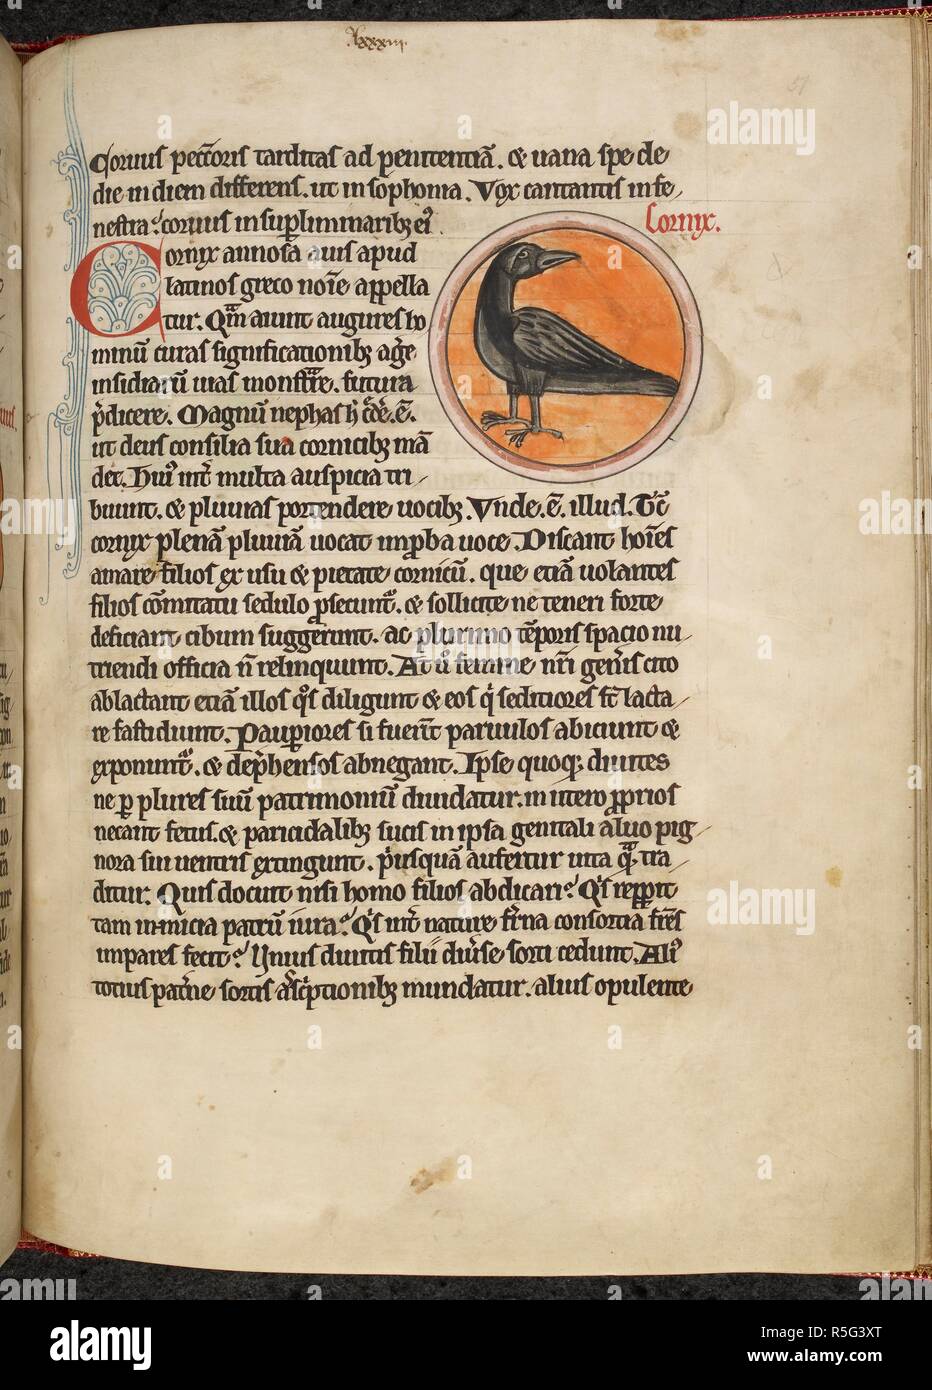 lxxxiii.
51
Coruus pectoris tarditas ad penitentiā. & uana spe de
die in diem differens. ut in sophonia. Vox cantantis in fe
nestra? coruus in supliminaribꝫ eiꝰ.
Cornix.
Cornix annosa auis apud
latinos greco noīe appella
tur. Qm̄ aiunt augures ho
minū curas significationibꝫ agˀe
insidiarū uias monstrˀare. futura
p̄dicere. Magnū nephas h̄ c̄dˀe. ē.
ut deus consilia sua cornicibꝫ mā
det. Huiꝰ int̄ multa auspicia tri
buunt. & pluuias portendere uocibꝫ. Vnde. ē. illud. Tc̄
cornix plenā pluuiā uocat imp̱ba uoce. Discant hoīes
amare filios ex usu & pietate cornicū. que etiā uolantes
filios cōmitatu sedulo ꝓsecuntˀ. & sollicite ne teneri forte
deficiant cibum suggerunt. ac plurimo tēporis spacio nu
triendi officia n̄ relinquunt. At uˀo femine nr̄i genˀis cito
ablactant etiā illos qˀs diligunt & eos qˀ seditiores st̄ lacta
re fastidiunt. Paup̱iores si fuerīt paruulos abiciunt &
exponuntˀ. & dep̄hensos abnegant. Ipse quoqꝫ diuites
ne p̱ plures suū patrimoniū diuidatur. in utero ꝓprios
necant fetus. & paricidalibꝫ sucis in ipsa genitali aluo pig
nora sui uentris extingunt. pˀusquā aufertur uita qˀ. tra
ditur. Quis docuit nisi homo filios abdicari? Qˀs rep̱pit
tam inmicia patrū iura? Qˀs intˀ nature frˀna consortia frˀes
impares fecit? Vnius diuitis filii diuˀse sorti cedunt. Aliꝰ
totius patˀne sortis asc̄ptionibꝫ mundatur. alius opulente
alamy
R5G3XT
www.alamy.com